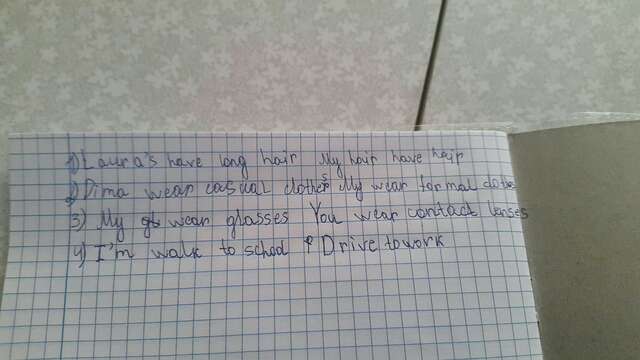 1) Laura's have long hair My hair have hair
2) Dima wear casual clothes My wear formal clothe
3) My wear glasses You wear contact lenses
4) I'm walk to school Drive to work